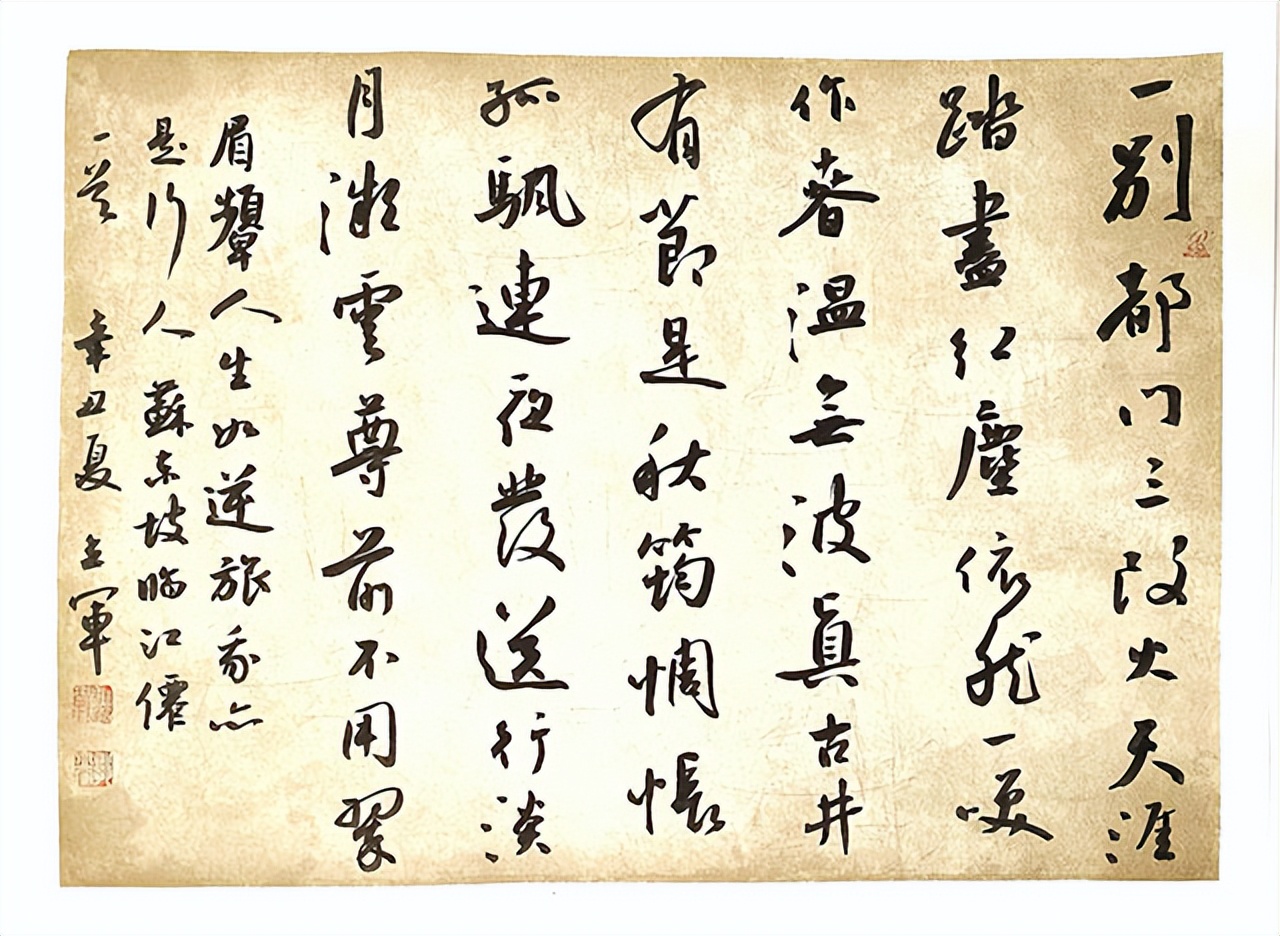 一別都门三改火天涯
踏盡红塵依然一笑
作春温無波真古井
有節是秋筠惆悵
孤帆連夜發送行淡
月微雲尊前不用翠
眉顰人生如逆旅我亦
是行人蘇東坡临江僊
一首 辛丑夏 立軍